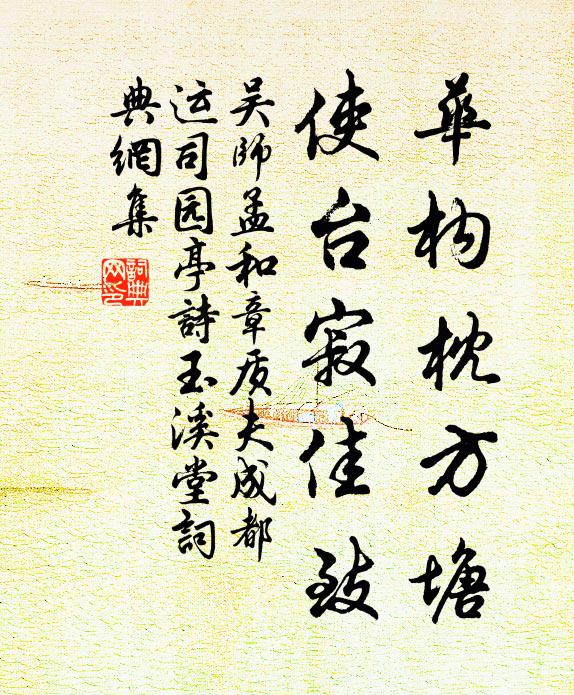 華构枕方塘
使台寂佳致
吴師孟和章质夫成都
运司园亭詩玉溪堂詞
典網集
詞典網印